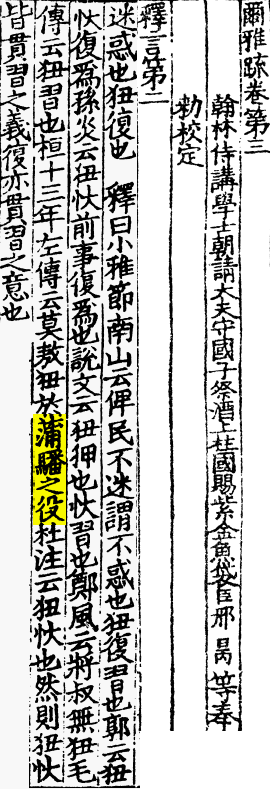 爾雅疏卷第三
翰林侍講學士朝請大夫守國子祭酒上柱國賜紫金魚袋臣邢昺等奉
勑校定
釋言第二
迷惑也狃復也　釋曰小雅節南山云俾民不迷謂不惑也狃復習也郭云狃
忕復為孫炎云狃忕前事復為也說文云狃狎也忕習也鄭風云將叔無狃毛
傳云狃習也桓十三年左傳云莫敖狃於蒲騷之役杜注云狃忕也然則狃忕
皆貫習之義復亦貫習之意也